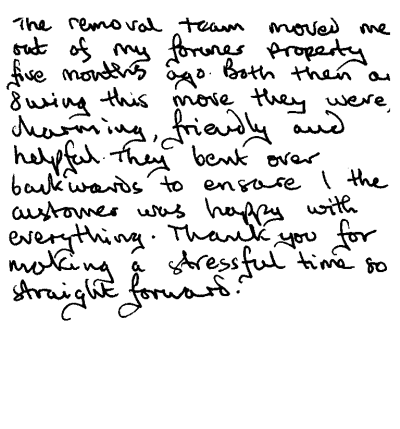 The removal team moved me
out of my former property
five months ago. Both then a
during this move they were,
charming, friendly and
helpful. They bent over
backwards to ensure I the
customer was happy with
everything. Thank you for
making a stressful time so
straight forward.